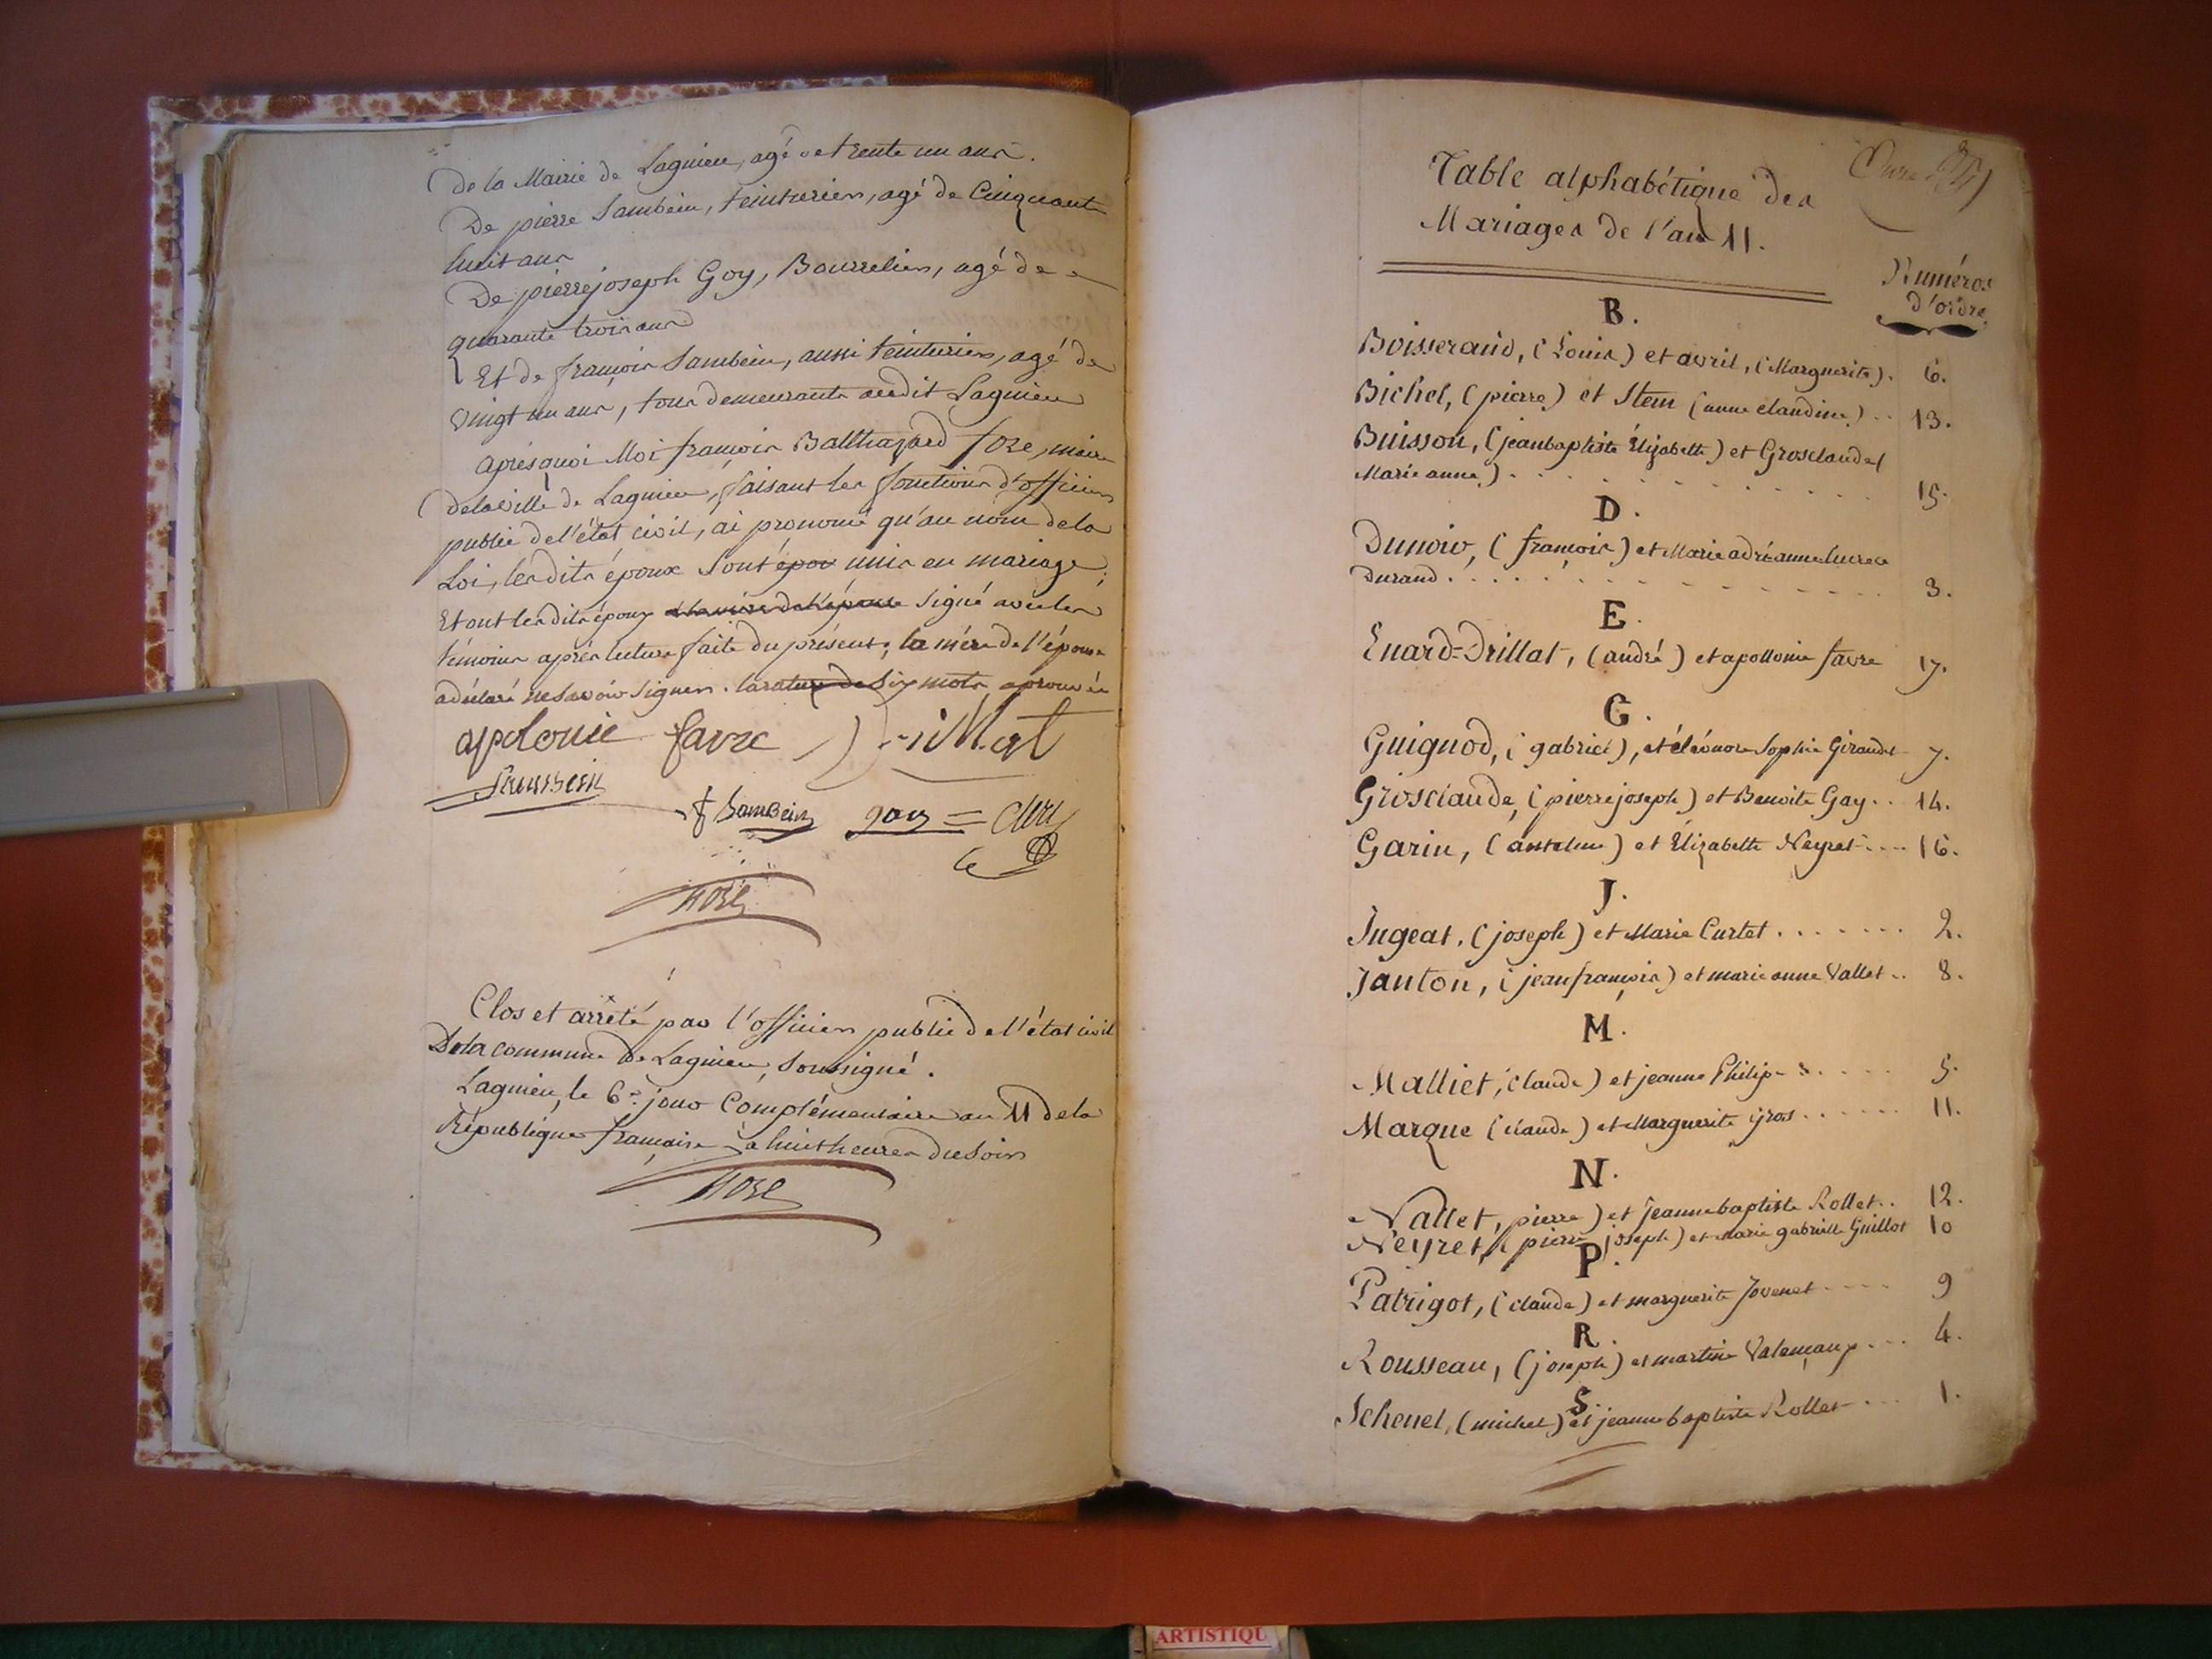 De la Mairie de Lagnieu, agé de trente un ans.
De pierre Sambein, teinturier, agé de Cinquante
huit ans
De pierre joseph Goy, Bourrelier, agé de
quarante trois ans
Et de françois Sambein, aussi teinturier, agé de
vingt un ans, tous demeurants audit Lagnieu
après quoi Moi françois Balthazard , maire
de la Ville de Lagnieu, faisant les fonctions d'officier
public de l'état civil, ai prononcé qu'au nom de la
Loi, les dits époux Sont épou unis en mariage;
Et ont les dits époux et la mère de l'épouse signé avec les
témoins après lecture faite du présent; la mère de l'épouse
a déclaré ne Savoir signer. la rature de Six mots aprouvée
apolonie favre Drillat
Sambein
f Sambein goy
Clos et arrêté par l'officier public de l'état civil
De la commune de Lagnieu, Soussigné.
Lagnieu, le 6e jour Complémentaire an 11 de la
République française à huit heures du Soir
Table alphabétique des
Mariages de l'an 11.
Numéros
d'ordre
B.
Boisserand, (Louis) et avril, (Marguerite). 6.
Bichel, (pierre) et Stem (anne claudine) .. 13.
Buisson, (jean baptiste Élizabeth) et Grosclaude (
Marie anne) . . . . . . . . . . . . 15.
D.
Dunoir, (françois) et Marie adréanne lucrece
Durand . . . . . . . . . . . . 3.
E.
Enard=Drillat, (andré) et apollonie favre 17.
G.
Guignod, (gabriel), et éléonore Sophie Giraudet 7.
Grosclaude, (pierre joseph) et Benoite Gay .. 14.
Garin, (antelme) et Élizabeth Neyret .... 16.
J.
Jugeat, (joseph) et Marie Curtet . . . . . . . 2.
Janton, (jean françois) et marie anne Vallet .. 8.
M.
Malliet, (claude) et jeanne Philipe . . . . 5.
Marque (claude) et Marguerite gros . . . . . . 11.
N.
Nallet, pierre) et jeanne baptiste Rollet .. 12.
Neyret, (pierre joseph) et Marie gabrielle Guillot 10
P.
Patrigot, (claude) et marguerite Jovenet . . . . 9
R.
Rousseau, (joseph) et martine Valençaux ... 4.
S.
Schenel, (michel) et jeanne baptiste Rollet ... 1.
ARTISTIQU